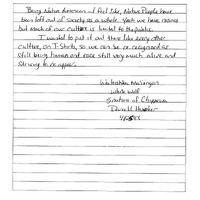 Being Native American I feel like, Native People have
been left out of society as a whole. Yeah we have revived
but much of our culture is limited to the public.
I wanted to put it out there like every other
culture, on T-Shirts, so we can be re-recognized as
still being human and race still very much alive and
striving to re-appear.
White Wolf
Nation of Chippewa